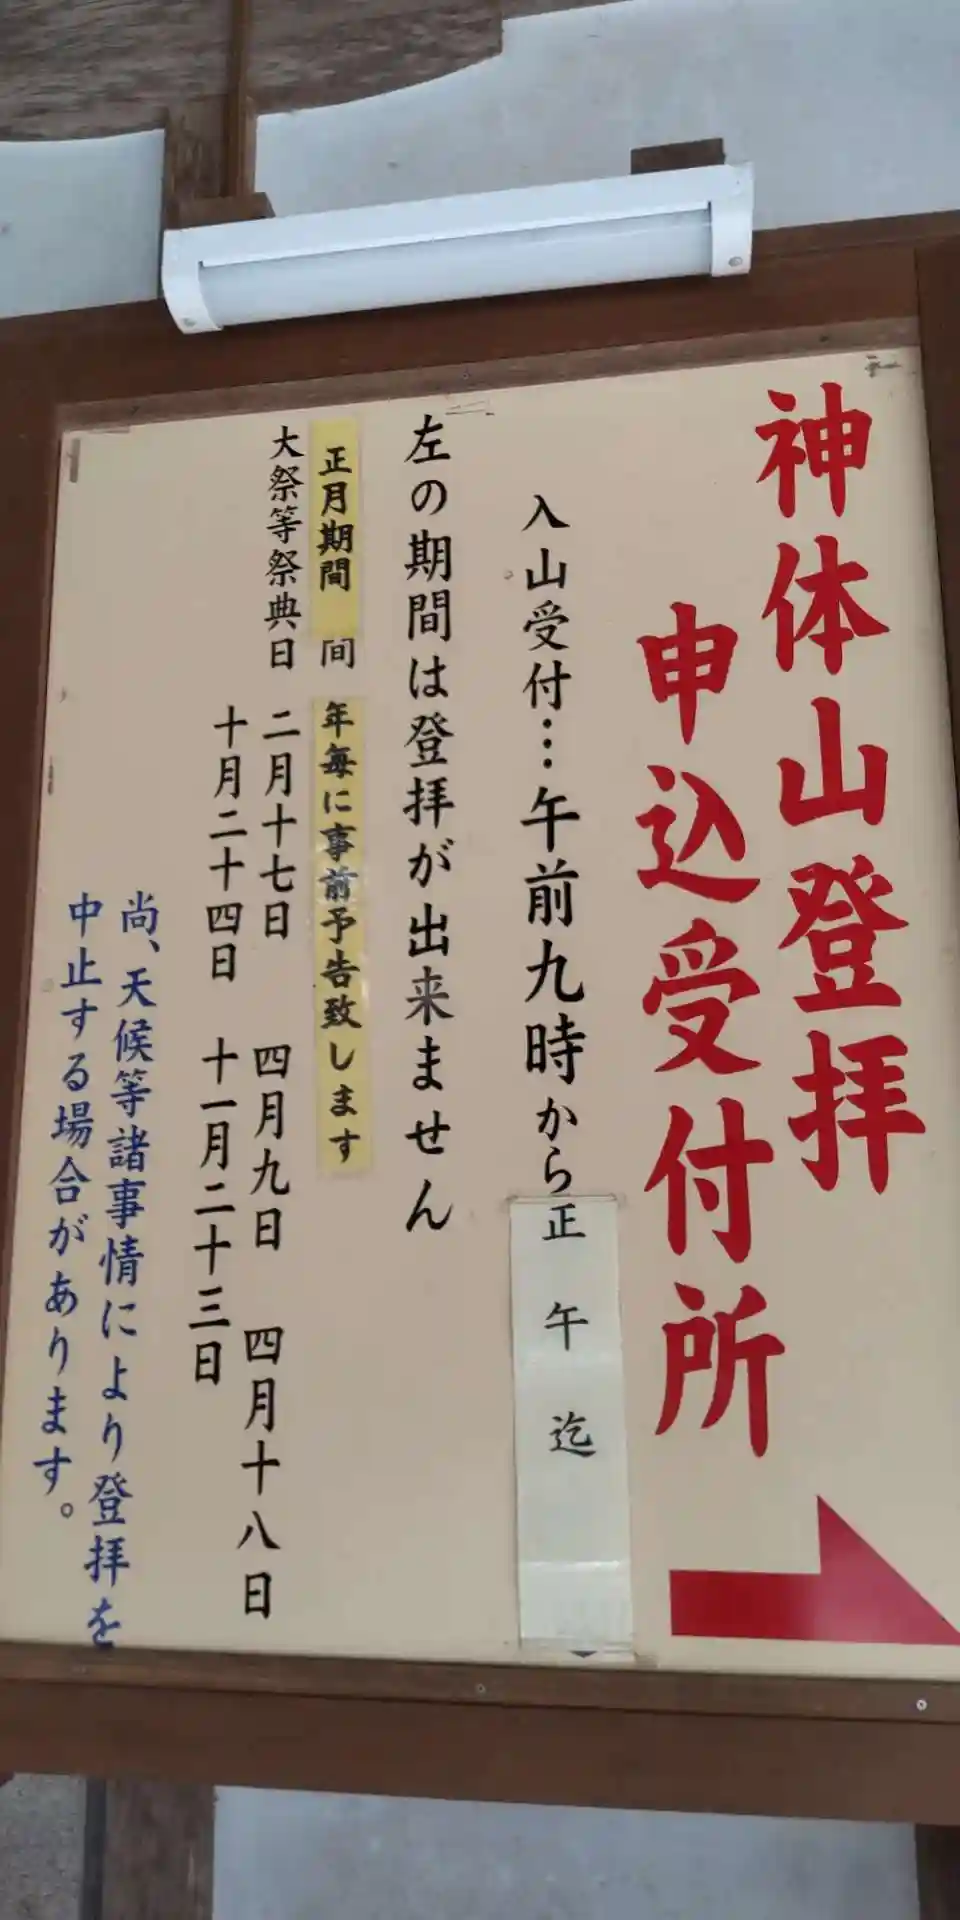 神体山登拝
申込受付所
入山受付…午前九時から正午迄
左の期間は登拝が出来ません
正月期間 間 年毎に事前予告致します
大祭等祭典日 二月十七日 四月九日 四月十八日
十月二十四日 十一月二十三日
尚、天候等諸事情により登拝を
中止する場合があります。